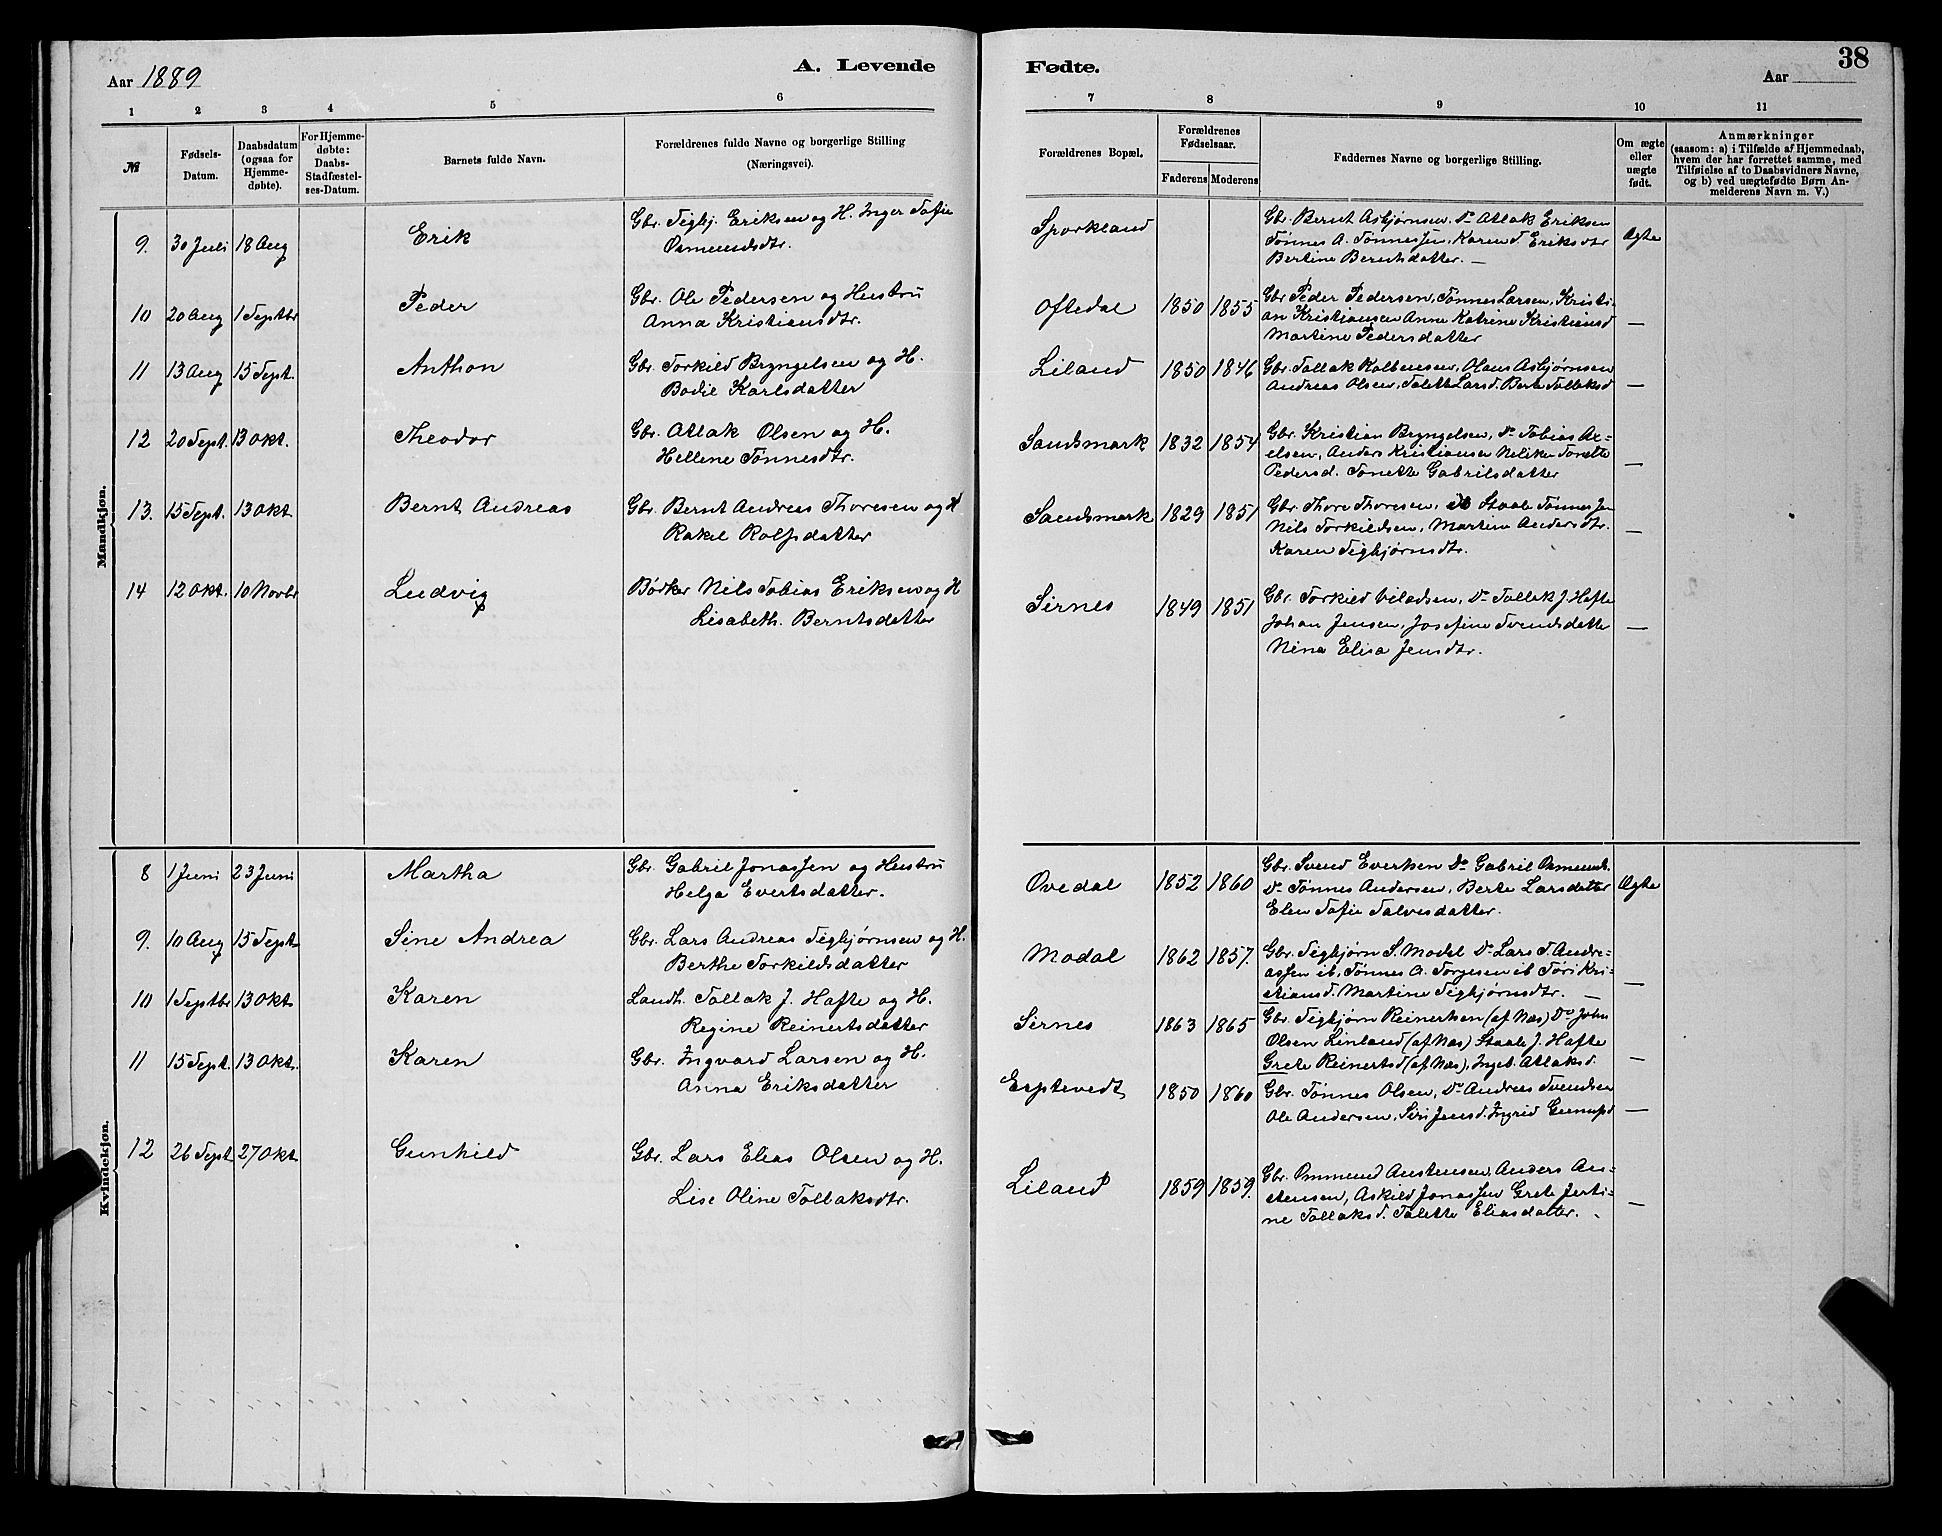 Aar 1889
A. Levende
Fødte.
38
Aar
1 2 3 4 5 6 7 8 9 10 11
№
Fødsels-
Datum.
Daabsdatum
(ogsaa for
Hjemme-
døbte).
For Hjemme-
døbte:
Daabs-
Stadfæstel-
ses-Datum.
Barnets fulde Navn.
Forældrenes fulde Navne og borgerlige Stilling
(Næringsvei).
Forældrenes Bopæl.
Forældrenes
Fødselsaar.
Faderens Moderens
Faddernes Navne og borgerlige Stilling.
Om ægte
eller
uægte
født.
Anmærkninger
(saasom: a) i Tilfælde af Hjemmedaab,
hvem der har forrettet samme, med
Tilføielse af to Daabsvidners Navne,
og b) ved uægtefødte Børn An-
melderens Navn m. V.)
Mandkjøn.
9. 30 Juli 18 Aug Erik
Gbr. Tegbj. Eriksen og H. Inger Tofie
Osmundsdtr.
Sporkland
Gbr. Bernt Asbjørnsen, Do Atlak Eriksen
Tønnes A. Tønnessen, Karen T Eriksdtr
Bertine Berntsdatter. —
Ægte
10 20 Aug 1 Septbr Peder
Gbr. Ole Pedersen og Hustru
Anna Kristiansdtr.
Oftedal 1850 1855
Gbr Peder Pedersen, Tønnes Larsen, Kristi-
an Kristiansen Anne Katrine Kristiansd
Martine Pedersdatter
—
11 13 Aug 15 Sept. Anthon
Gbr. Torkild Bryngelsen og H.
Bodil Karlsdatter
Liland 1850 1846
Gbr. Tollak Kolbensen, Olaus Asbjørnsen
Andreas Olsen, Talette Larsd. Berte Tollaksd
—
12 20 Sept. 13 Okt. Theodor
Gbr. Atlak Olsen og H.
Hellene Tønnesdtr.
Sandsmark 1832 1854
Gbr. Kristian Bryngelsen, Do Tobias Ae-
elsen, Anders Kristiansen Nelike Tonette
Pedersd. Tonette Gabrilsdatter
—
13. 15 Sept. 13 Okt Bernt Andreas
Gbr. Bernt Andreas Thoresen og H
Rakel Rolfsdatter
Sandsmark 1829 1851
Gbr. Thore Thoresen, Staale Tønnessen
Nils Torkildsen, Martine Andersdtr.
Karen Tegbjørnsdtr.
—
14 12 Okt. 10 Novbr Ludvig
Børker Nils Tobias Eriksen og H
Lisabeth. Berntsdatter
Sirnes 1849 1851
Gbr. Torkild Viladsen, Do Tollak J. Hafte
Johan Jensen, Josefine Svendsdatter
Nina Elisa Jensdtr.
—
Kvindekjøn.
8 1 Juni 23 Juni Martha
Gbr. Gabril Jonassen og Hustru
Helga Evertsdatter.
Ovedal 1852 1860
Gbr. Svend Evertsen Do Gabril Osmunds.
Do Tønnes Andersen, Berte Larsdatter
Elen Tofie Talvesdatter.
Ægte
9. 10 Aug 15 Sept Sine Andrea
Gbr. Lars Andreas Tegbjørnsen og H.
Berthe Torkildsdatter
Modal 1862 1857.
Gbr. Tegbjørn S. Modal Do Lars T. Andre-
assen ib, Tønnes A. Torgesen ib Tøri Kri-
stiansd. Martine Tegbjørnsdtr. —
—
10 1 Septbr 13 Okt Karen
Landh. Tollak J. Hafte og H.
Regine Reinertsdatter
Sirnes 1863 1865
Gbr. Tegbjørn Reinertsen (af Næs) Do John
Olsen Linland (af Næs) Staale J. Hafte
Grete Reinertsd (af Næs), Ingeb. Atlaksd.
—
11 15 Sept. 13 Okt. Karen
Gbr. Ingvard Larsen og H.
Anna Eriksdatter
Esptevedt 1850 1860
Gbr. Tønnes Olsen, Do Andreas Svendsen
Ole Andersen, Siri Jensd. Ingrid Gunufsd
—
12 26 Sept 27 Okt Gunhild
Gbr. Lars Elias Olsen og H.
Lise Oline Tollaksdtr.
Liland 1859 1859.
Gbr. Ommund Austensen, Anders Au-
stensen, Askild Jonassen Grete Jerti-
ne Tollaksd. Talette Eliasdatter.
—